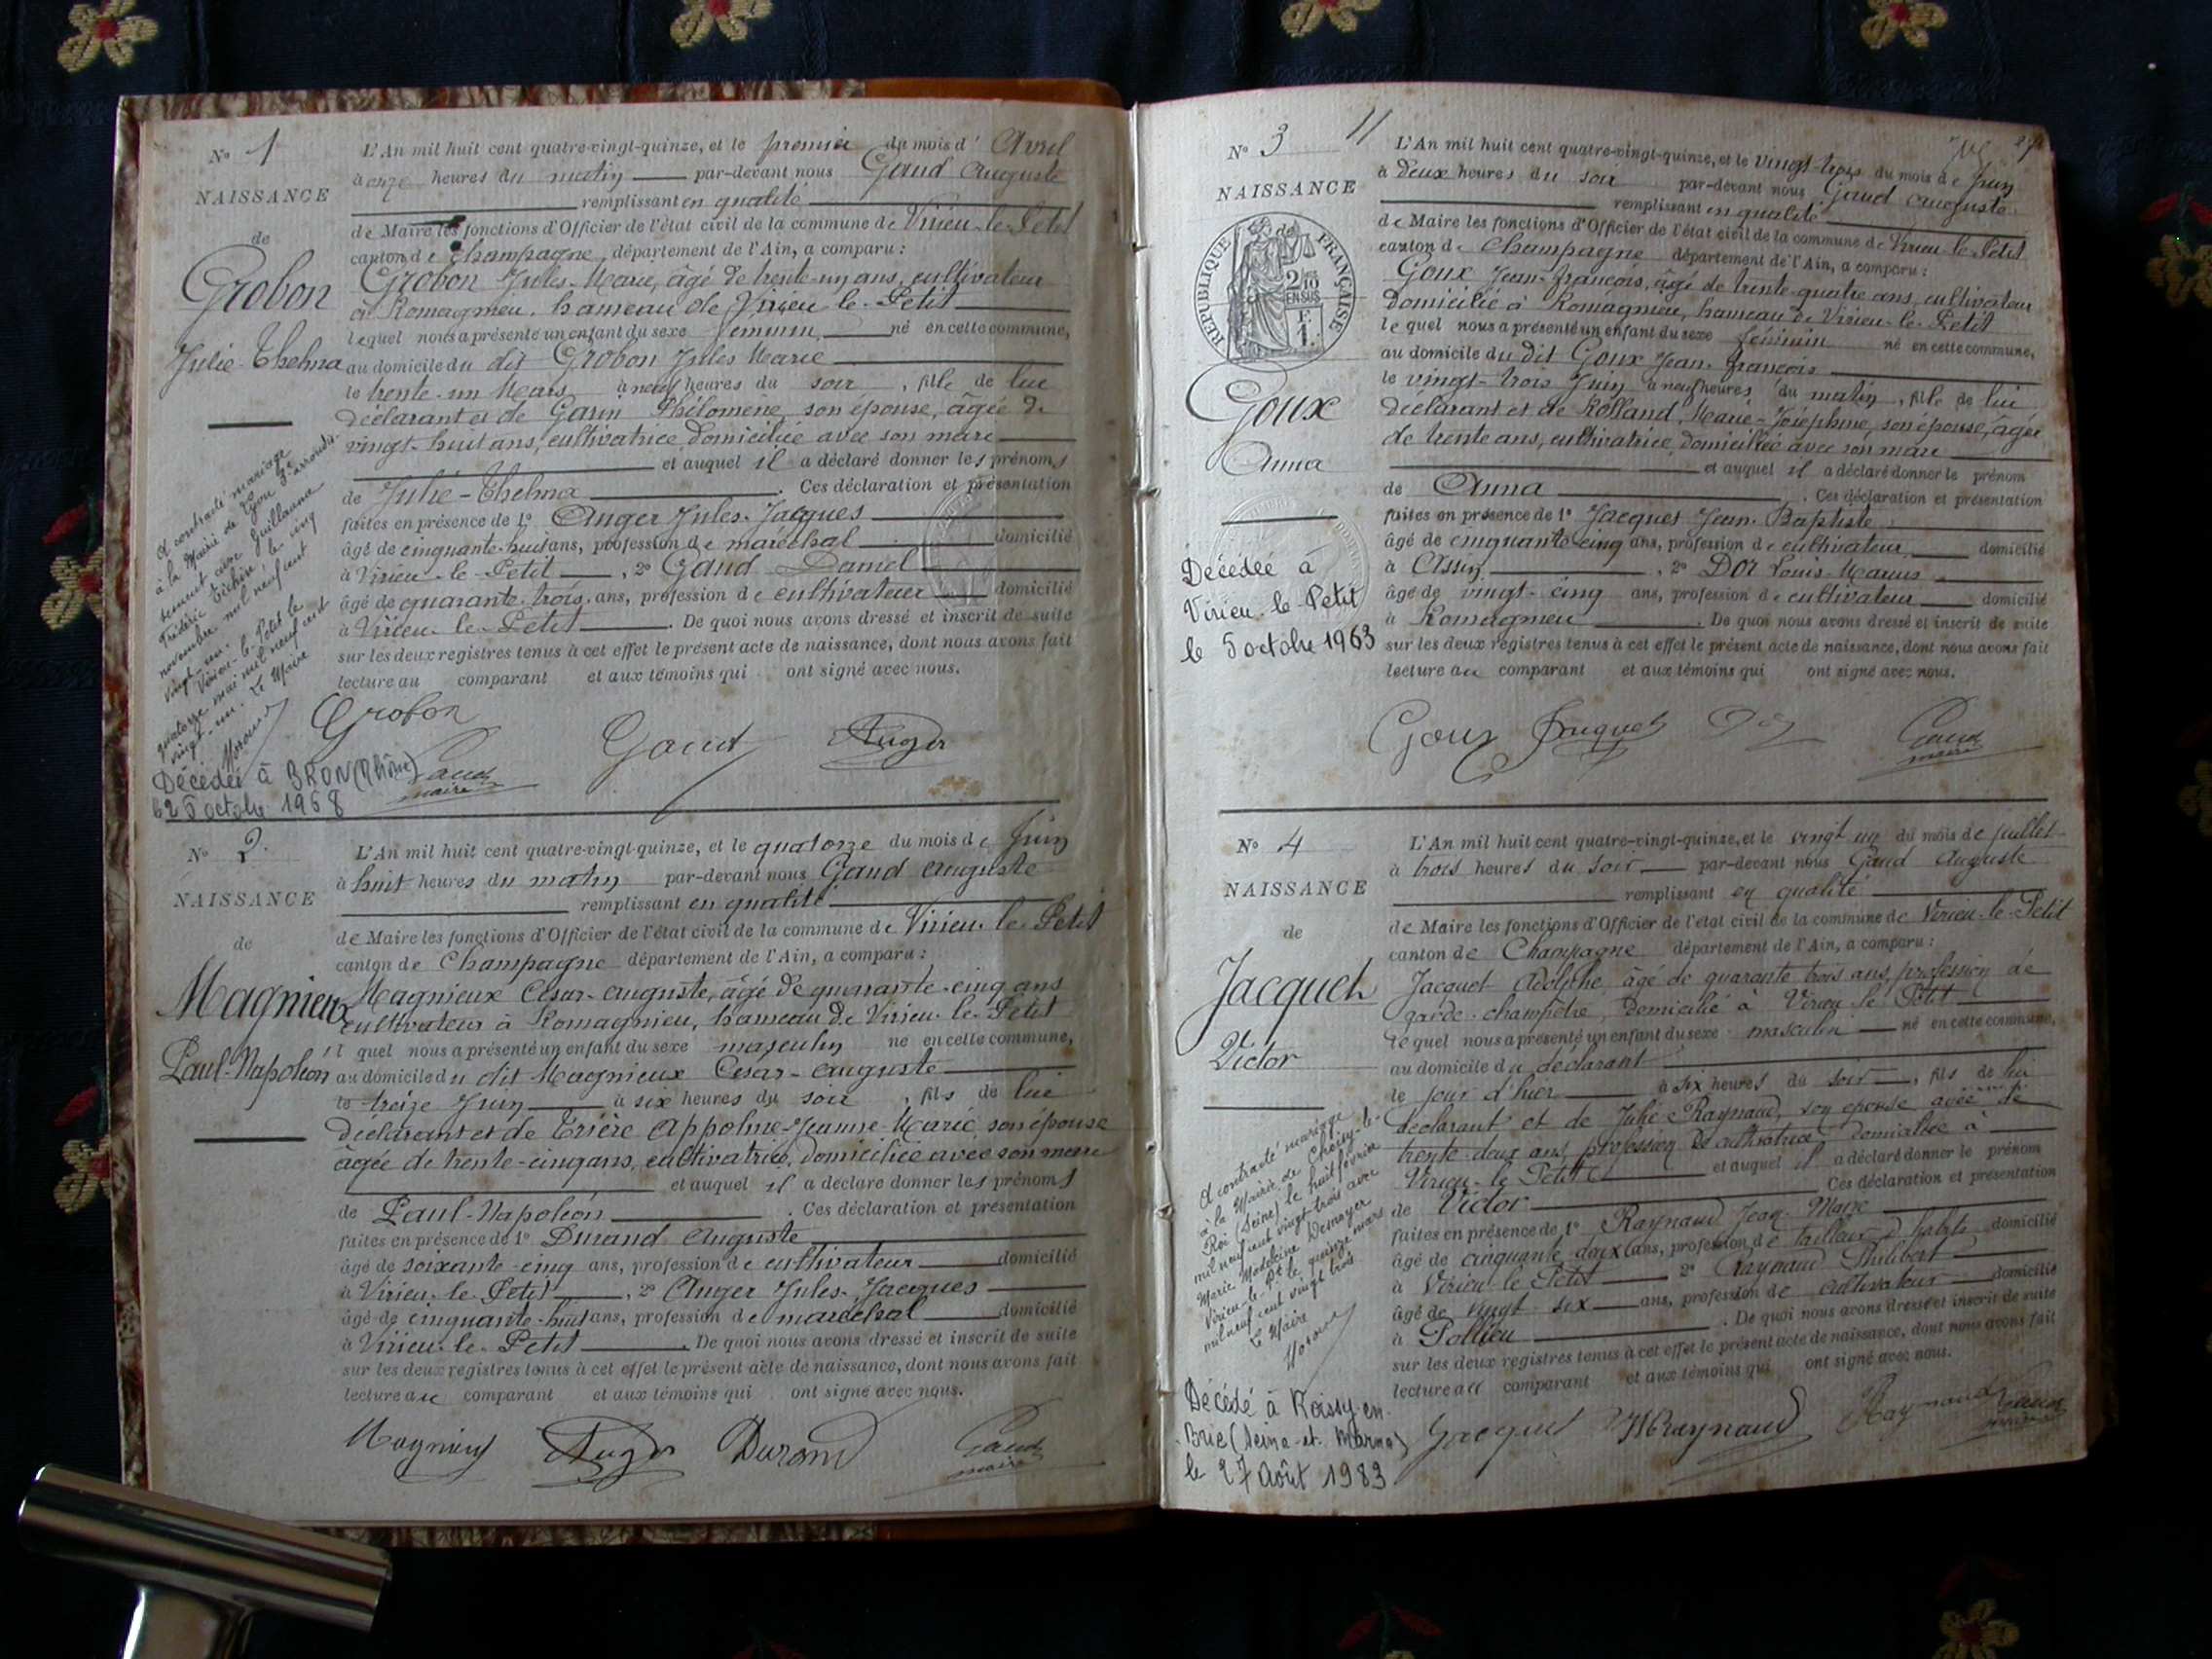 N° 1
NAISSANCE
de
Grobon
Julie-Thelma
A contracté mariage
à la Mairie de Lyon 3e arrondis-
sement avec Guillaume
Frédéric
novembre mil neuf cent
vingt-un.
Virieu-le-Petit le
quatorze mai mil neuf cent
vingt-un. Le Maire
Décédée à BRON (Rhône)
le 25 octobre 1968
L'An mil huit cent quatre-vingt-quinze, et le premier du mois d'Avril
à onze heures du matin par-devant nous Gaud Auguste
remplissant en qualité
de Maire les fonctions d'Officier de l'état civil de la commune de Virieu-le-Petit
canton de Champagne département de l'Ain, a comparu :
Grobon Jules-Marie, âgé de trente-un ans, cultivateur
à Romagnieu, hameau de Virieu-le-Petit
lequel nous a présenté un enfant du sexe féminin né en cette commune,
au domicile du dit Grobon Jules Marie
le trente-un Mars à neuf heures du soir, fille de lui
déclarant et de Garin Philomène, son épouse, âgée de
vingt-huit ans, cultivatrice domiciliée avec son mari
et auquel il a déclaré donner les prénoms
de Julie-Thelma. Ces déclaration et présentation
faites en présence de 1° Anger Jules-Jacques
âgé de cinquante-huit ans, profession de maréchal domicilié
à Virieu-le-Petit, 2° Gaud Daniel
âgé de quarante-trois ans, profession de cultivateur domicilié
à Virieu-le-Petit. De quoi nous avons dressé et inscrit de suite
sur les deux registres tenus à cet effet le présent acte de naissance, dont nous avons fait
lecture au comparant et aux témoins qui ont signé avec nous.
Grobon Gaud Anger
Gaud
maire
N° 2.
NAISSANCE
de
Magnieux
Paul-Napoléon
L'An mil huit cent quatre-vingt-quinze, et le quatorze du mois de Juin
à huit heures du matin par-devant nous Gaud Auguste
remplissant en qualité
de Maire les fonctions d'Officier de l'état civil de la commune de Virieu-le-Petit
canton de Champagne département de l'Ain, a comparu :
Magnieux César-Auguste, âgé de quarante-cinq ans
cultivateur à Romagnieu, hameau de Virieu-le-Petit
lequel nous a présenté un enfant du sexe masculin né en cette commune,
au domicile du dit Magnieux César-Auguste
le treize Juin à six heures du soir, fils de lui
déclarant et de Trière Appolnie-Jeanne-Marie, son épouse
âgée de trente-cinq ans, cultivatrice, domiciliée avec son mari
et auquel il a déclaré donner les prénoms
de Paul-Napoléon. Ces déclaration et présentation
faites en présence de 1° Durand Auguste
âgé de soixante-cinq ans, profession de cultivateur domicilié
à Virieu-le-Petit, 2° Anger Jules-Jacques
âgé de cinquante-huit ans, profession de maréchal domicilié
à Virieu-le-Petit. De quoi nous avons dressé et inscrit de suite
sur les deux registres tenus à cet effet le présent acte de naissance, dont nous avons fait
lecture au comparant et aux témoins qui ont signé avec nous.
Magnieux Anger Durand Gaud
maire
N° 3 11
NAISSANCE
de
RÉPUBLIQUE FRANÇAISE
2/10 EN SUS
F. 1.
Goux
Anna
Décédée à
Virieu-le-Petit
le 5 octobre 1963
L'An mil huit cent quatre-vingt-quinze, et le vingt-trois du mois de Juin
à deux heures du soir par-devant nous Gaud Auguste
remplissant en qualité
de Maire les fonctions d'Officier de l'état civil de la commune de Virieu-le-Petit
canton de Champagne département de l'Ain, a comparu :
Goux Jean-François, âgé de trente-quatre ans, cultivateur
domicilié à Romagnieu, hameau de Virieu-le-Petit
lequel nous a présenté un enfant du sexe féminin né en cette commune,
au domicile du dit Goux Jean-François
le vingt-trois Juin à neuf heures du matin, fille de lui
déclarant et de Rolland, Marie-Joséphine, son épouse, âgée
de trente ans, cultivatrice, domiciliée avec son mari
et auquel il a déclaré donner le prénom
de Anna. Ces déclaration et présentation
faites en présence de 1° Jacques Jean-Baptiste
âgé de cinquante cinq ans, profession de cultivateur domicilié
à Assin, 2° Dor Louis-Marius
âgé de vingt-cinq ans, profession de cultivateur domicilié
à Romagnieu. De quoi nous avons dressé et inscrit de suite
sur les deux registres tenus à cet effet le présent acte de naissance, dont nous avons fait
lecture au comparant et aux témoins qui ont signé avec nous.
Goux Jacques Dor Gaud
maire
N° 4
NAISSANCE
de
Jacquet
Victor
A contracté mariage
à la Mairie de Choisy-le-
Roi (Seine) le huit février
mil neuf cent vingt-trois avec
Marie Madeleine Demoyer
Virieu-le-Pt le quinze mars
mil neuf cent vingt trois
Le Maire
Décédé à Roissy-en-
Brie (Seine-et-Marne)
le 27 Août 1983
L'An mil huit cent quatre-vingt-quinze, et le vingt un du mois de juillet
à trois heures du soir par-devant nous Gaud Auguste
remplissant en qualité
de Maire les fonctions d'Officier de l'état civil de la commune de Virieu-le-Petit
canton de Champagne département de l'Ain, a comparu :
Jacquet Adolphe, âgé de quarante trois ans, profession de
garde-champêtre, domicilié à Virieu le Petit
lequel nous a présenté un enfant du sexe masculin né en cette commune,
au domicile du déclarant
le jour d'hier à six heures du soir, fils de lui
déclarant et de Julie Raynaud, son épouse âgée de
trente-deux ans, profession de cultivatrice domiciliée à
Virieu-le-Petit et auquel il a déclaré donner le prénom
de Victor Ces déclaration et présentation
faites en présence de 1° Raynaud Jean-Marc
âgé de cinquante deux ans, profession de tailleur d'habits domicilié
à Virieu-le-Petit 2° Raynaud Philibert
âgé de vingt-six ans, profession de cultivateur domicilié
à Pollieu. De quoi nous avons dressé et inscrit de suite
sur les deux registres tenus à cet effet le présent acte de naissance, dont nous avons fait
lecture au comparant et aux témoins qui ont signé avec nous.
Jacquet Raynaud Raynaud Gaud
maire